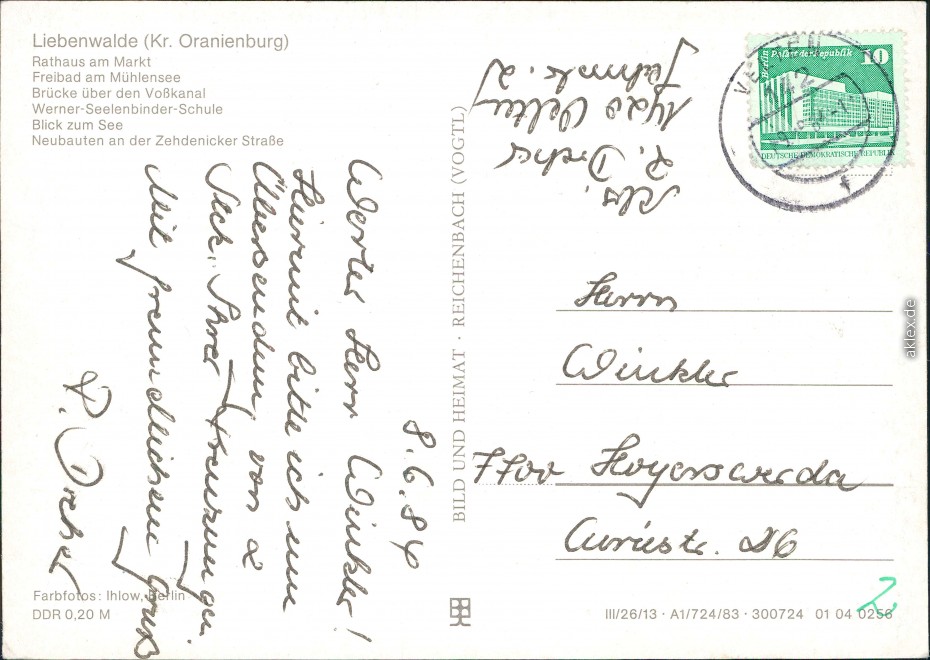 Liebenwalde (Kr. Oranienburg)
Rathaus am Markt
Freibad am Mühlensee
Brücke über den Voßkanal
Werner-Seelenbinder-Schule
Blick zum See
Neubauten an der Zehdenicker Straße
8.6.84
Werter Herr Winkler!
Hiermit bitte ich um
Übersendung von 2
Stck. Ihrer
Mit freundlichem Gruß
P. Dreher
Farbfotos: Ihlow, Berlin
DDR 0,20 M
BILD UND HEIMAT · REICHENBACH (VOGTL)
Abs.
P. Dreher
1420 Velten
Berlin Palast der Republik 10
DEUTSCHE DEMOKRATISCHE REPUBLIK
VELTEN
142
Herrn
Winkler
7700 Hoyerswerda
Curiestr. 26
III/26/13 · A1/724/83 · 300724 01 04 0256
aklex.de